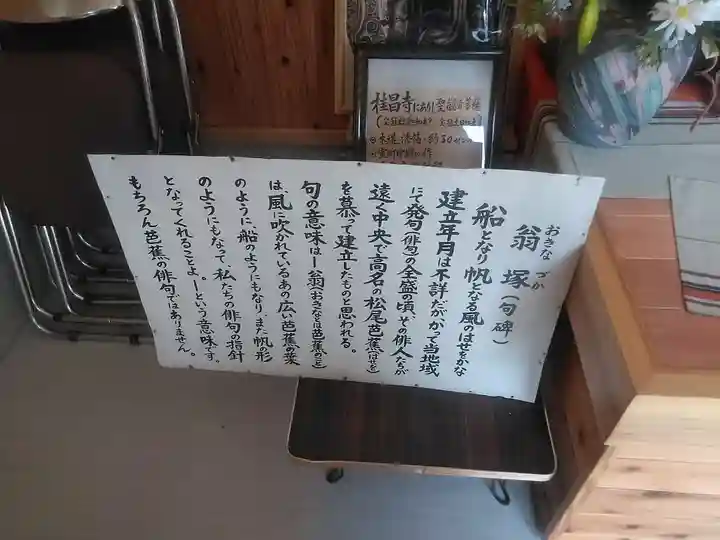 翁塚（句碑）
おきな づか
船となり帆となる風のはせをかな
建立年月は不詳だがかつて当地域
にて発句（俳句）の全盛の頃、その俳人たちが
遠く中央で高名の松尾芭蕉（はせを）
を慕って建立したものと思われる。
句の意味は―翁（おきなは芭蕉のこと）
は、風に吹かれているあの広い芭蕉の葉
のように船のようにもなり、また帆の形
のようにもなって、私たちの俳句の指針
となってくれることよ。―という意味です。
もちろん芭蕉の俳句ではありません。
桂昌寺にあり